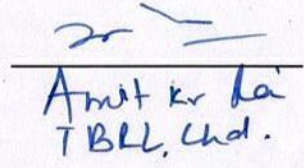 Amit Kr Rai
TBRL, Chd.